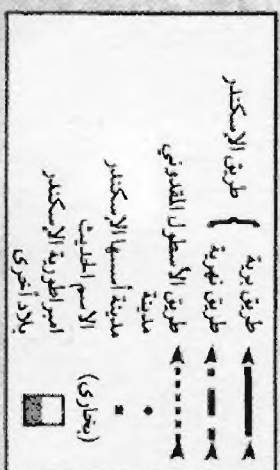 طريق الإسكندر
طريق برية
طريق نهرية
طريق الأسطول المقدوني
مدينة
مدينة أسسها الإسكندر
الاسم الحديث (بخارى)
امبراطورية الإسكندر
بلاد أخرى